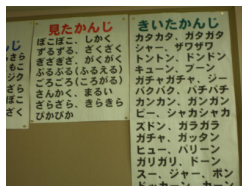 見たかんじ
ぽこぽこ、しかく
ずるずる、ざくざく
ぎざぎざ、がくがく
ぶるぶる(ふるえる)
ごろごろ(ころがる)
さんかく、まるい
ざらざら、きらきら
ぴかぴか
きいたかんじ
カタカタ、ガタガタ
シャー、ザワザワ
トントン、ドンドン
キューン、ブーン
ガチャガチャ、ジー
パクパク、パチパチ
カンカン、ガンガン
ピー、シャカシャカ
ズドン、ガラガラ
ガチャ、ガッタン
ヒュー、バリーン
ガリガリ、ドーン
スー、ジャー、ポン